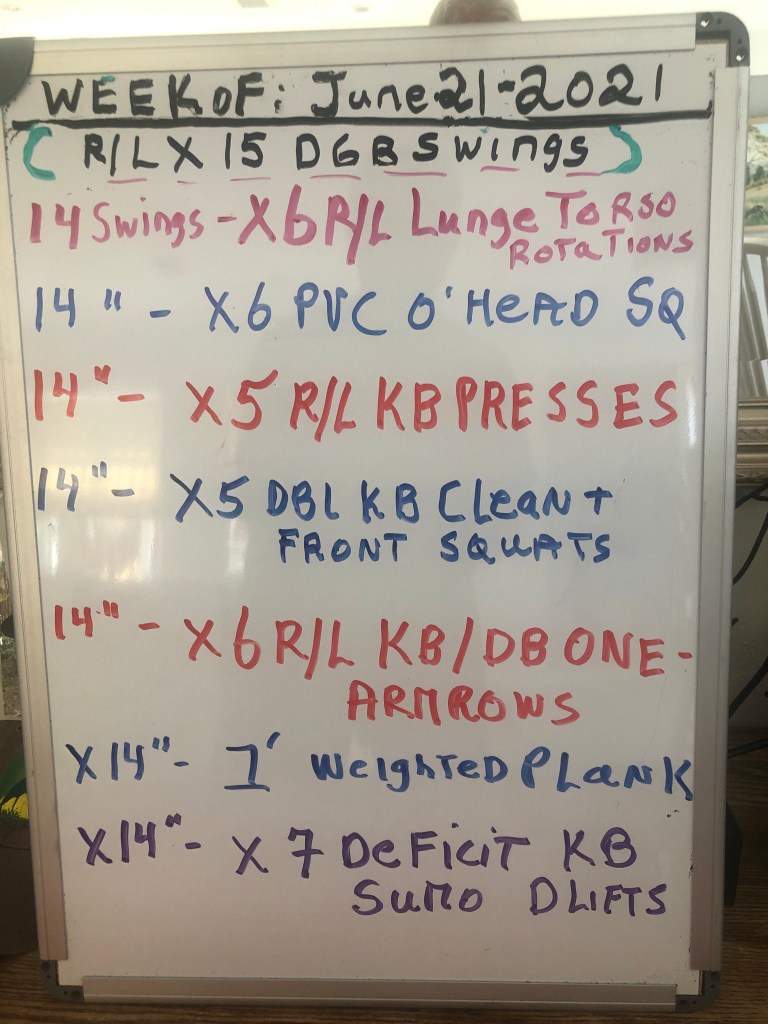 WEEK OF: June 21-2021
(R/L X 15 DGB SWings)
14 Swings - X6 R/L Lunge TORSO
ROTaTIONS
14 " - X6 PVC O'HeAD SQ
14 " - X5 R/L KB PRESSES
14 " - X5 DBL KB CleaN +
FRONT SQUATS
14 " - X6 R/L KB/DB ONE-
ARM ROWS
X14 " - 1' WeigHTeD PLaNK
X14 " - X 7 DeFiciT KB
SUMO DLIFTS